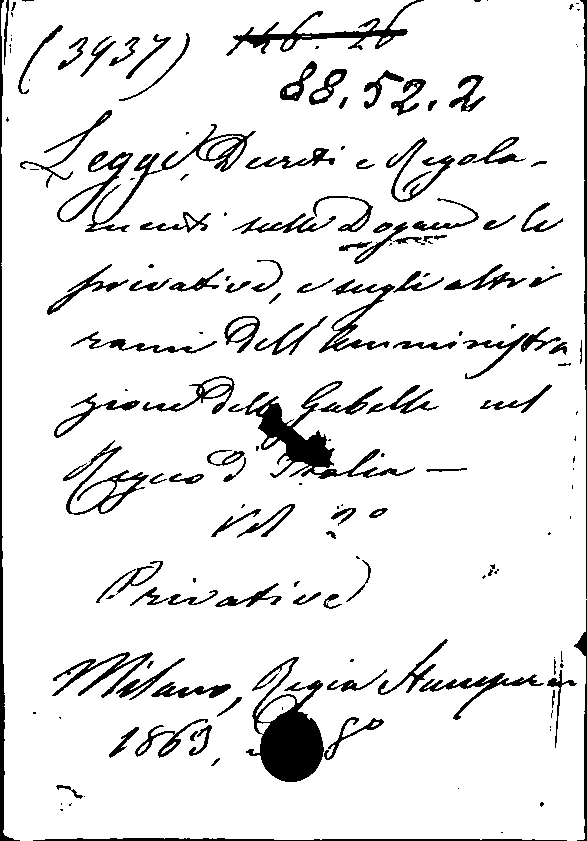 (3937) 146. 26
88.52.2
Leggi, Decreti e Regola-
menti sulle Dogane e le
privative, e sugli altri
rami dell'Amministra-
zione delle Gabelle nel
Regno d'Italia —
Vol 2º
Privative
Milano, Regia Stamperia
1863, 8º